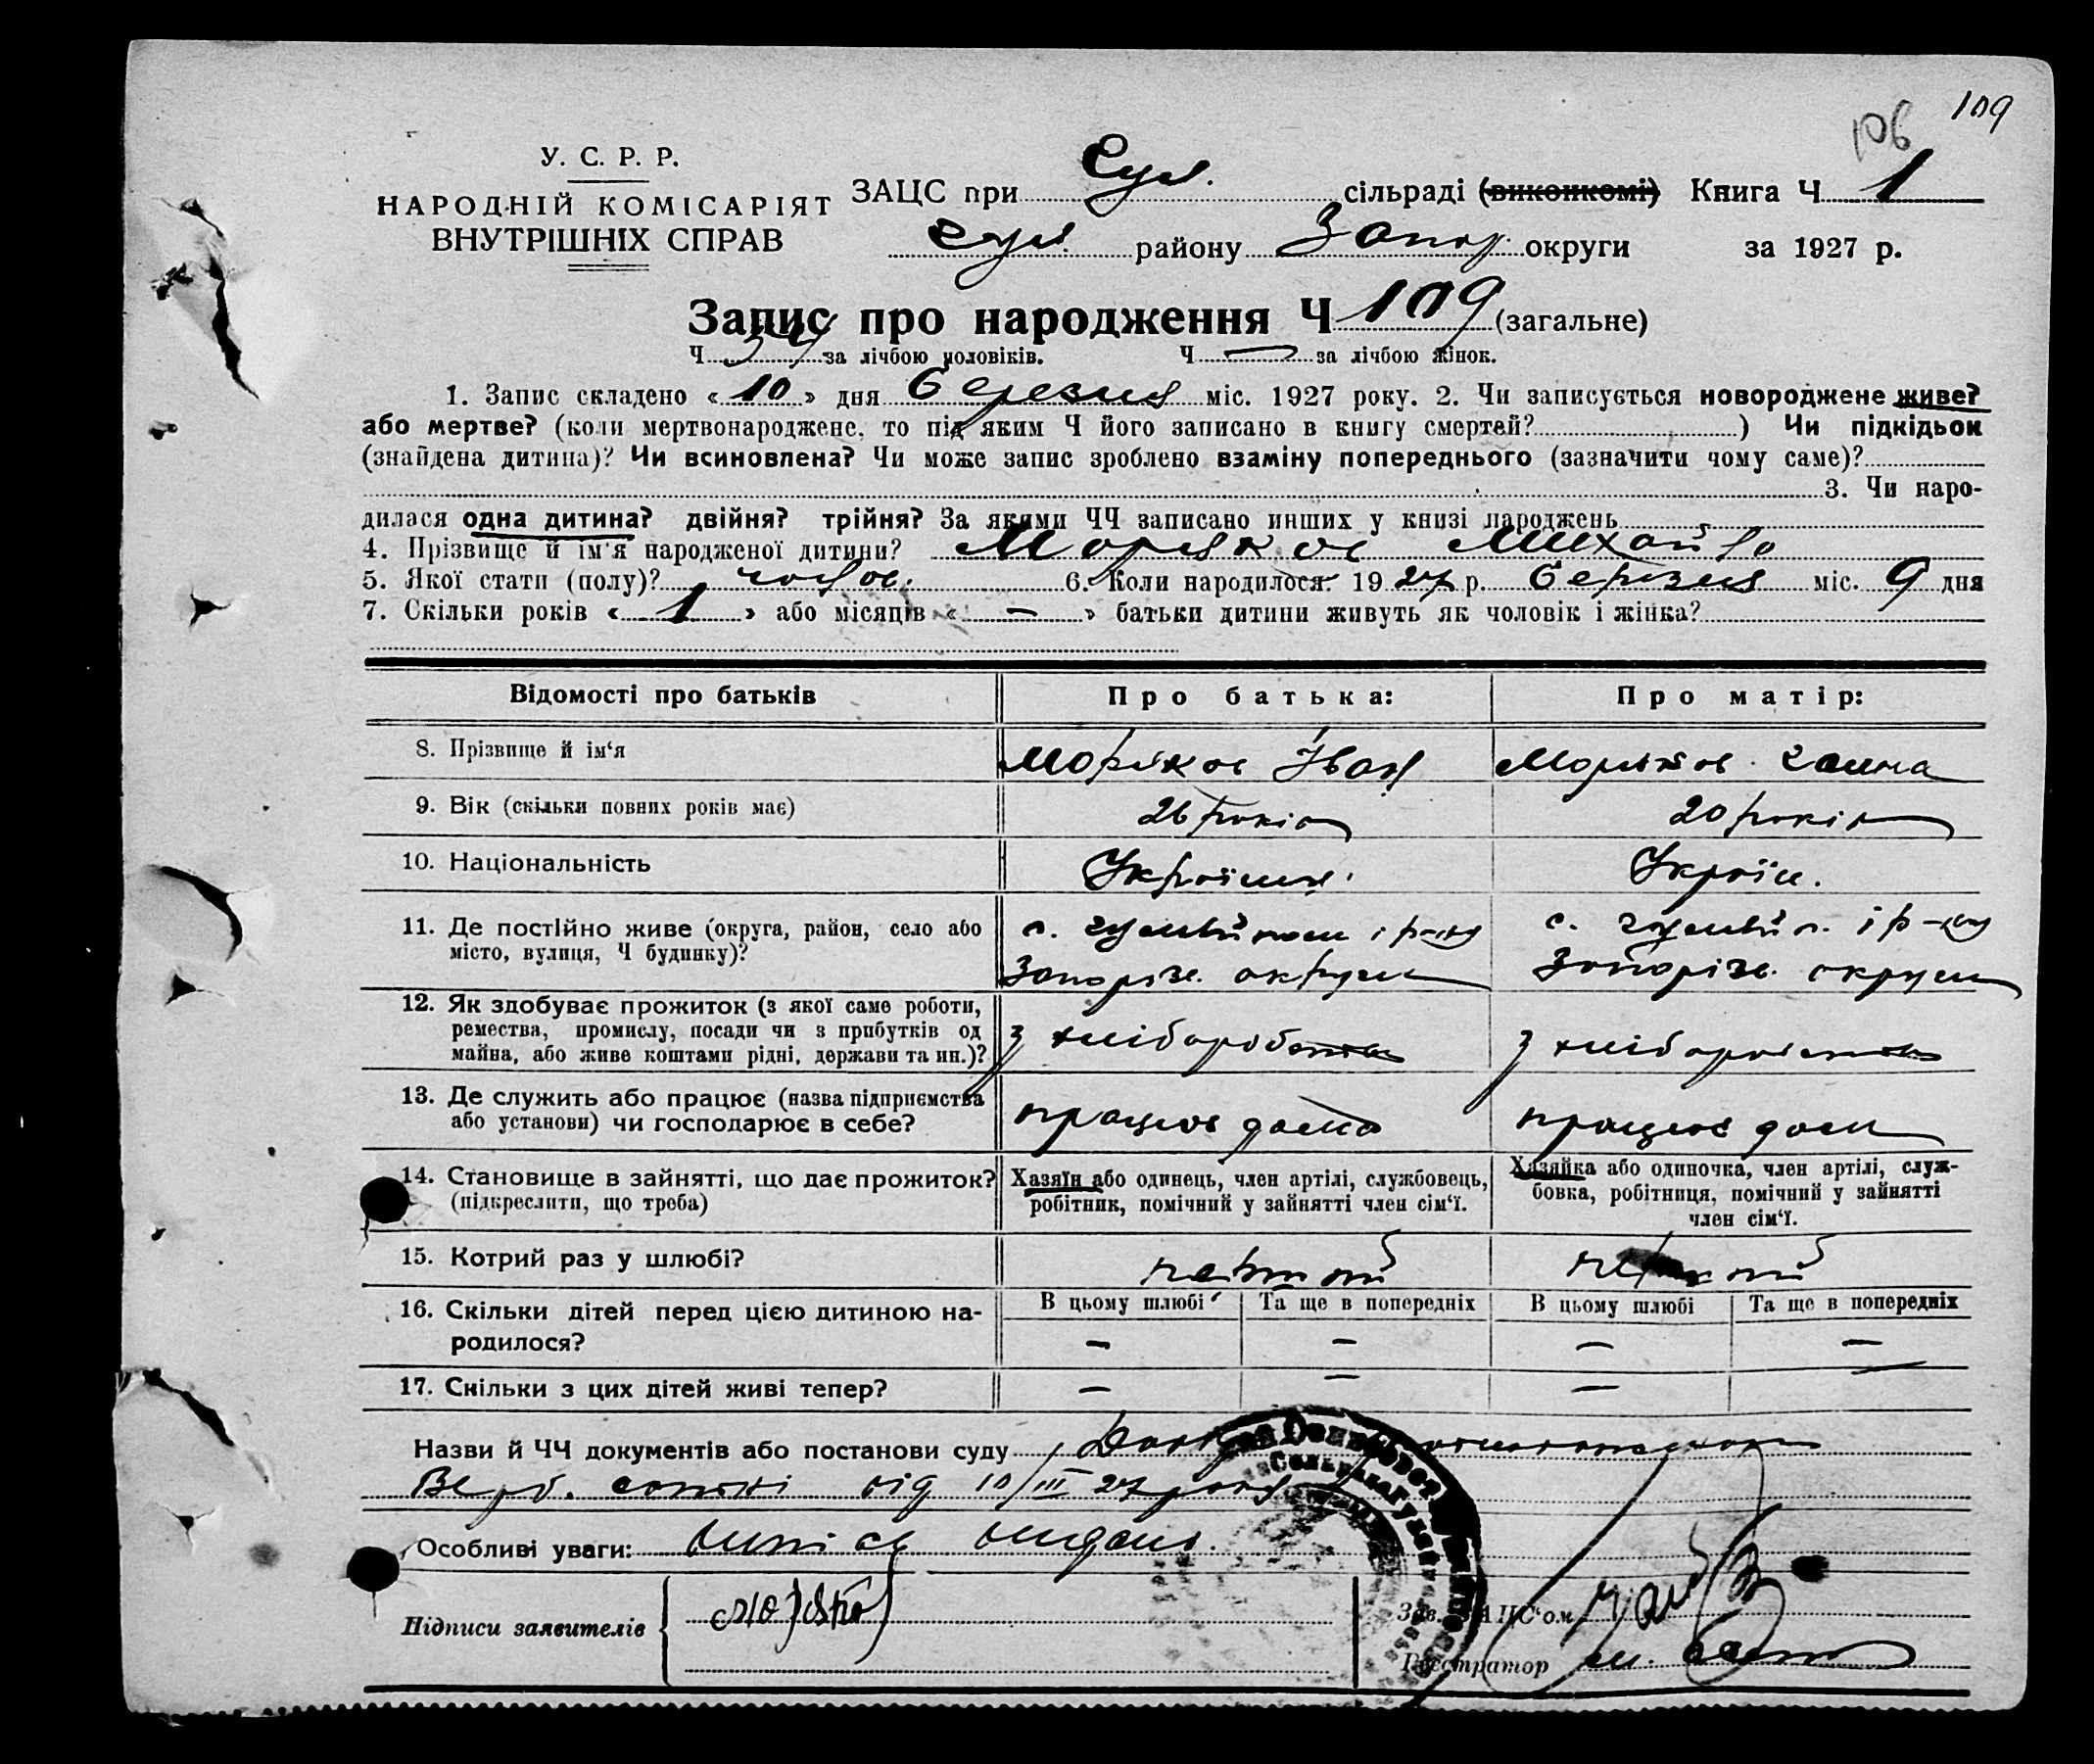 109
106
У. С. Р. Р.
НАРОДНІЙ КОМІСАРІЯТ
ВНУТРІШНІХ СПРАВ
ЗАЦС при сільраді (виконкомі) Книга Ч 1
району Запор. округи за 1927 р.
Запис про народження Ч 109 (загальне)
Ч за лічбою чоловіків. Ч — за лічбою жінок.
1. Запис складено «10» дня березня міс. 1927 року. 2. Чи записується новороджене живе?
або мертве? (коли мертвонароджене, то під яким Ч його записано в книгу смертей? ) Чи підкідьок
(знайдена дитина)? Чи всиновлена? Чи може запис зроблено взаміну попереднього (зазначити чому саме)?
3. Чи наро-
дилася одна дитина? двійня? трійня? За якими ЧЧ записано инших у книзі народжень
4. Прізвище й ім'я народженої дитини? Моряков Михайло
5. Якої стати (полу)? чолов. 6. Коли народилося 1927 р. березня міс. 9 дня
7. Скільки років «1» або місяців «—» батьки дитини живуть як чоловік і жінка?
Відомості про батьків Про батька: Про матір:
8. Прізвище й ім'я Моряков Іван Моряков Ганна
9. Вік (скільки повних років має) 26 років 20 років
10. Національність Українц. Україн.
11. Де постійно живе (округа, район, село або с. і р-ну с. і р-ну
місто, вулиця, Ч будинку)? Запоріз. округи Запоріз. округи
12. Як здобуває прожиток (з якої саме роботи,
ремества, промислу, посади чи з прибутків од з хліборобства з хліборобства
майна, або живе коштами рідні, держави та ин.)?
13. Де служить або працює (назва підприємства працює дома працює дома
або установи) чи господарює в себе?
14. Становище в зайнятті, що дає прожиток? Хазяїн або одинець, член артілі, службовець, Хазяйка або одиночка, член артілі, служ-
(підкреслити, що треба) робітник, помічний у зайнятті член сім'ї. бовка, робітниця, помічний у зайнятті
член сім'ї.
15. Котрий раз у шлюбі? первий
16. Скільки дітей перед цією дитиною на- В цьому шлюбі Та ще в попередніх В цьому шлюбі Та ще в попередніх
родилося? — — — —
17. Скільки з цих дітей живі тепер? — — — —
Назви й ЧЧ документів або постанови суду
від 10/III 27 року
Особливі уваги:
Підписи заявителів
Зав. ЗАЦС'ом
Реєстратор